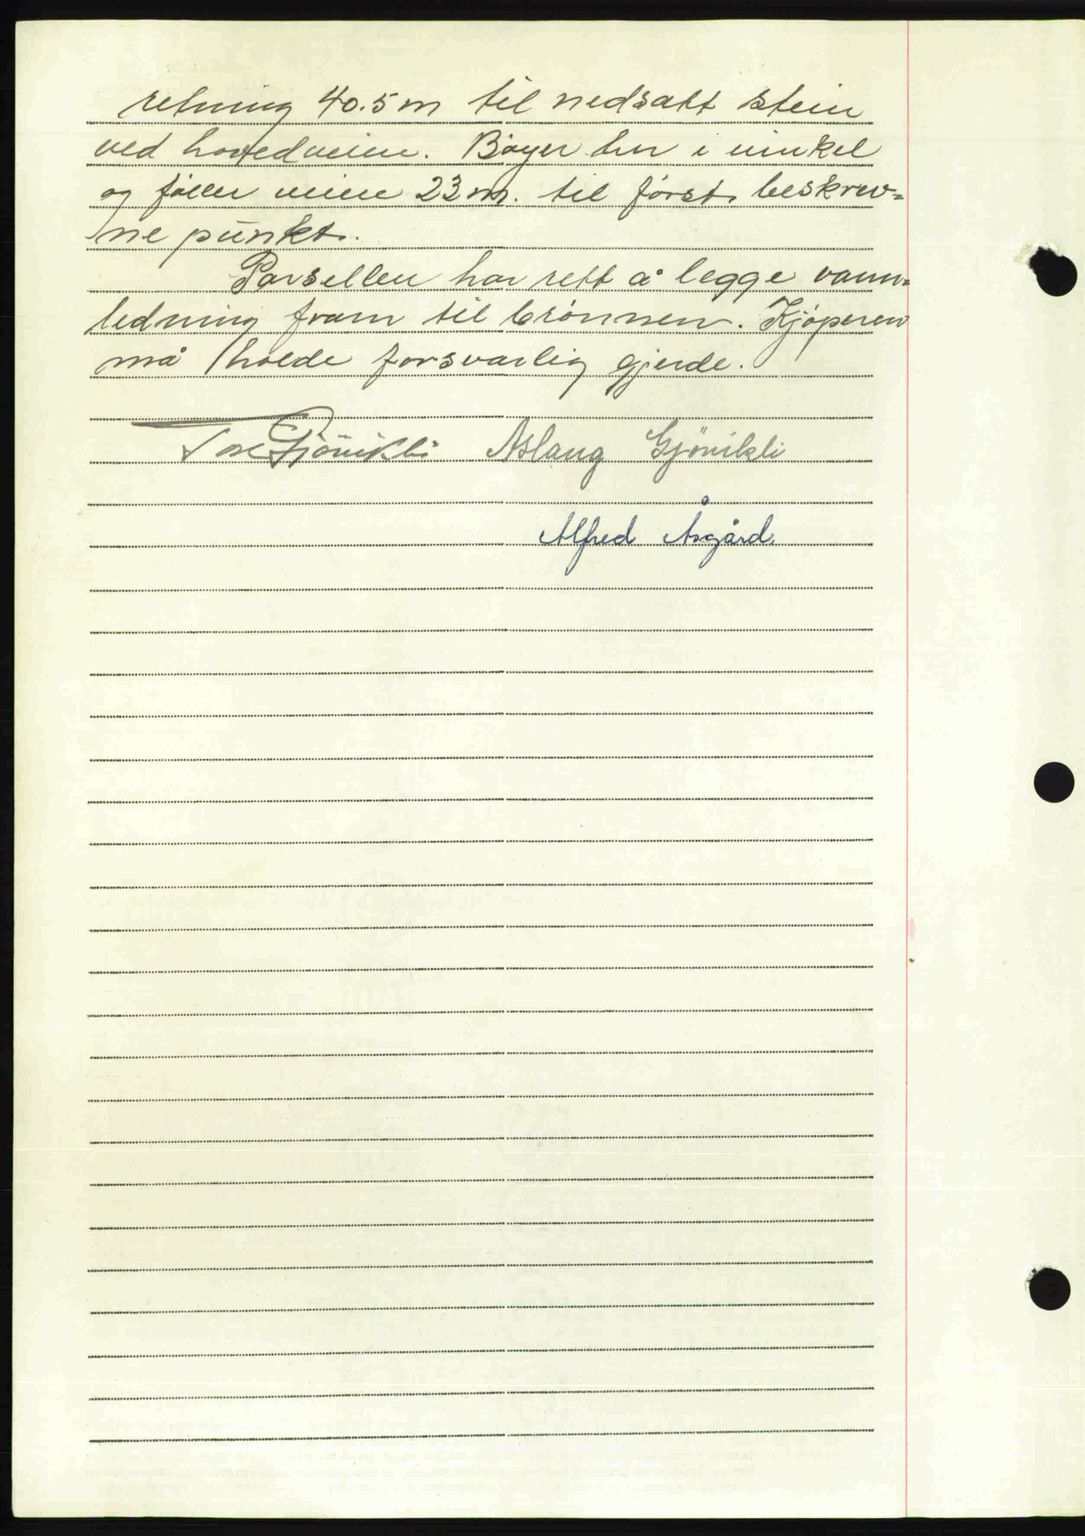 retning 40.5 m til nedsatt stein
ved hovedveien. Bøyer her i vinkel
og følger veien 23 m. til først beskrev=
ne punkt.
Parsellen har rett å legge vann=
ledning fram til brønnen. Kjøperen
må holde forsvarlig gjerde.
Tore Gjönikli Aslaug Gjönikli
Alfred Åsgård.